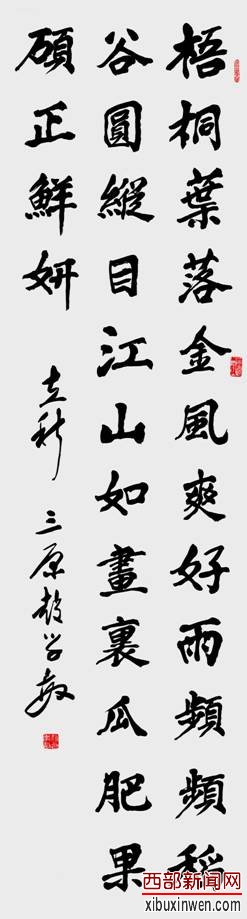 梧桐葉落金風爽好雨頻頻稻
谷圓縱目江山如畫裏瓜肥果
碩正鮮妍
立秋 三原趙学敏
西部新闻网
xibuxinwen.com